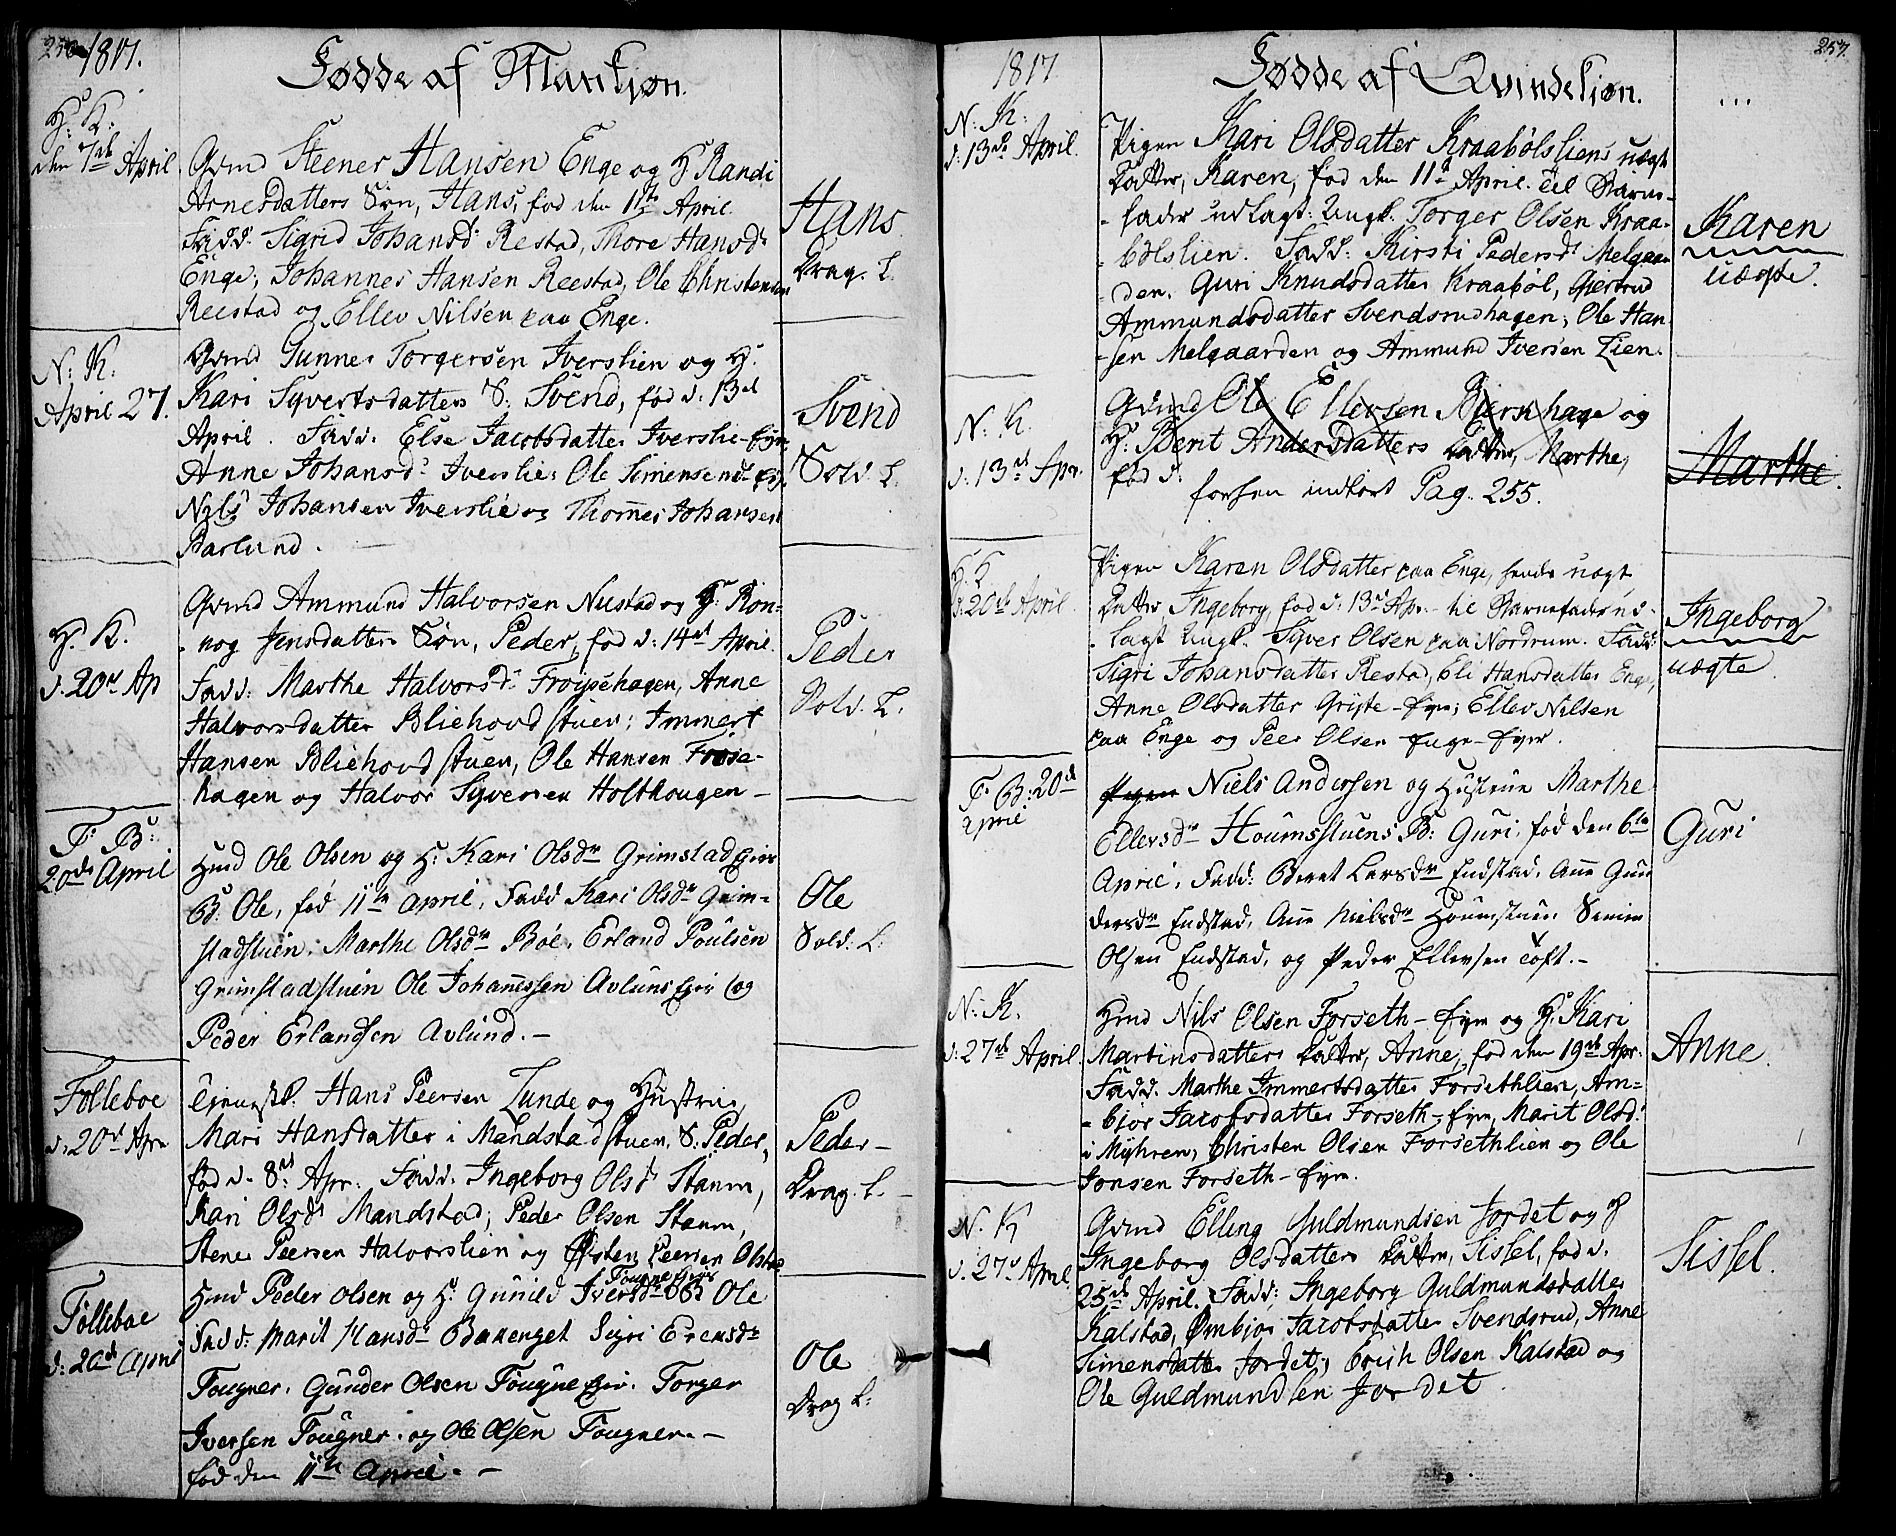 256
1817.
Fødde af Mankjøn.
H: K:
den 7de April
Gvmd Steener Hansen Enge og H: Randi
Arnesdatters Søn, Hans, fød den 1ste April
Fadd. Sigrid Johansd: Restad, Thore Hansdr
Enge, Johannes Hansen Reestad, Ole Christensen
Reestad og Ellev Nilsen paa Enge.
Hans
Drag. L.
N: K:
April 27.
Gvmd Gunner Torgersen Iverslien og H:
Kari Syvertsdatters S: Svend, fød d: 13de
April. Fadd: Else Jacobsdatter Iverslie-Eier
Anne Johansd: Iverslie: Ole Simensen
Nyls Johansen Iverslie og Thomes Johansen
Barlund.
Svend
Sold. L.
H: K.
d. 20de Ap
Gvmd Ammund Halvorsen Nustad og H: Ron-
nog Jensdatters Søn, Peder, fød d: 14de April.
Fadd: Marthe Halvorsd: Frøysehagen, Anne
Halvorsdatter Bliehovdstuen; Immert
Hansen Bliehovdstuen, Ole Hansen Frøise-
hagen og Halvor Syversen Holthougen -
Peder
Sold. L.
F: B:
20de April
Hmd Ole Olsen og H: Kari Olsdr Grimstad Eier
B: Ole, fød 11te April, Fadd Kari Olsdr Grim-
stadstuen, Marthe Olsdr Boe, Erland Poulsen
Grimstadstuen Ole Johannessen Avlunseier og
Peder Erlandsen Avlund. -
Ole
Sold: L:
Folleboe
d: 20de Apr
Tjenestk. Hans Peersen Lunde og Hustrue
Mari Hansdatter i Mandstadstuen, S. Peder,
fød d. 8de Apr. Fadd. Ingeborg Olsd: Stamm,
Kari Olsd: Mandstad, Peder Olsen Stamm,
Stener Peersen Halvorslien og Østen Peersen Olstad
Peder -
Drag. L. -
Folleboe
d: 20de April
Fougner Eier
Hmd Peder Olsen og H: Gunild Iversdr B: Ole
Fadd: Marit Hansdr Bakenget Sigri Erensdr
Fougner, Gunder Olsen Fougne Eier. Torger
Iversen Fougner og Ole Olsen Fougner. -
fød den 11te April. -
Ole
Drag L:
257.
1817
Fødde af Qvindekjøn.
...
N: K:
d: 13de April.
Pigen Kari Olsdatter Kraabølsliens uægte
Datter, Karen, fød den 11te April. Til Barne-
fader udlagt: Ungk. Torger Olsen Kraa-
bölslien. Fadd: Kirsti Pedersd: Melgaar-
den, Guri Knudsdatter Kraabøl, Giertrud
Ammundsdatter Svendsrudhagen; Ole Han-
sen Melgaarden og Ammund Iversen Lien.
Karen
uægte.
N: K.
d: 13de Apr.
Gvmd Ole Ellevsen Biernhage og
H: Berit Andersdatters Datter, Marthe,
fød d.
forhen indført Pag. 255.
Marthe.
H: K
d: 20de April.
Pigen Karen Olsdatter paa Enge, hendes uægte
Datter Ingeborg, fød d: 13de Apr. til Barnefader ud-
lagt Ungk. Syver Olsen paa Nordrum. Fadd:
Sigri Johansdatter Restad, Eli Hansdatter Enge,
Anne Olsdatter Griste-Eier; Ellev Nilsen
paa Enge og Peer Olsen Enge-Eier.
Ingeborg
uægte
F: B: 20de
April
Pigen Niels Andersen og Hustrue Marthe
Ellevsdr Houmsstuens B: Guri, fød den 6te
April, Fadd: Beret Larsdr Endstad, Ane Gun-
dersdr Endstad, Ane Nielsdr Houmstuen Simen
Olsen Endstad, og Peder Ellevsen Toft. -
Guri
N: K.
d: 27de April.
Hmd Nils Olsen Forseth-Eier og H: Kari
Martinsdatters Datter, Anne, fød den 19de Apr.
Fadd. Marthe Immertsdatter Forsethlien, Am-
bjør Jacobsdatter Forseth-Eier, Marit Olsd:
i Myhren, Christen Olsen Forsethlien og Ole
Jonsen Forseth-Eier.
Anne.
N. K
d. 27de April
Gvmd Elling Guldmundsen Jordet og H
Ingeborg Olsdatters Datter, Sissel, fød d.
25de April. Fadd: Ingeborg Guldmundsdatter
Kalstad, Ømbjør Jacobsdatter Svendsrud, Anne
Simensdatter Jordet; Erich Olsen Kalstad og
Ole Guldmundsen Jordet.
Sissel.